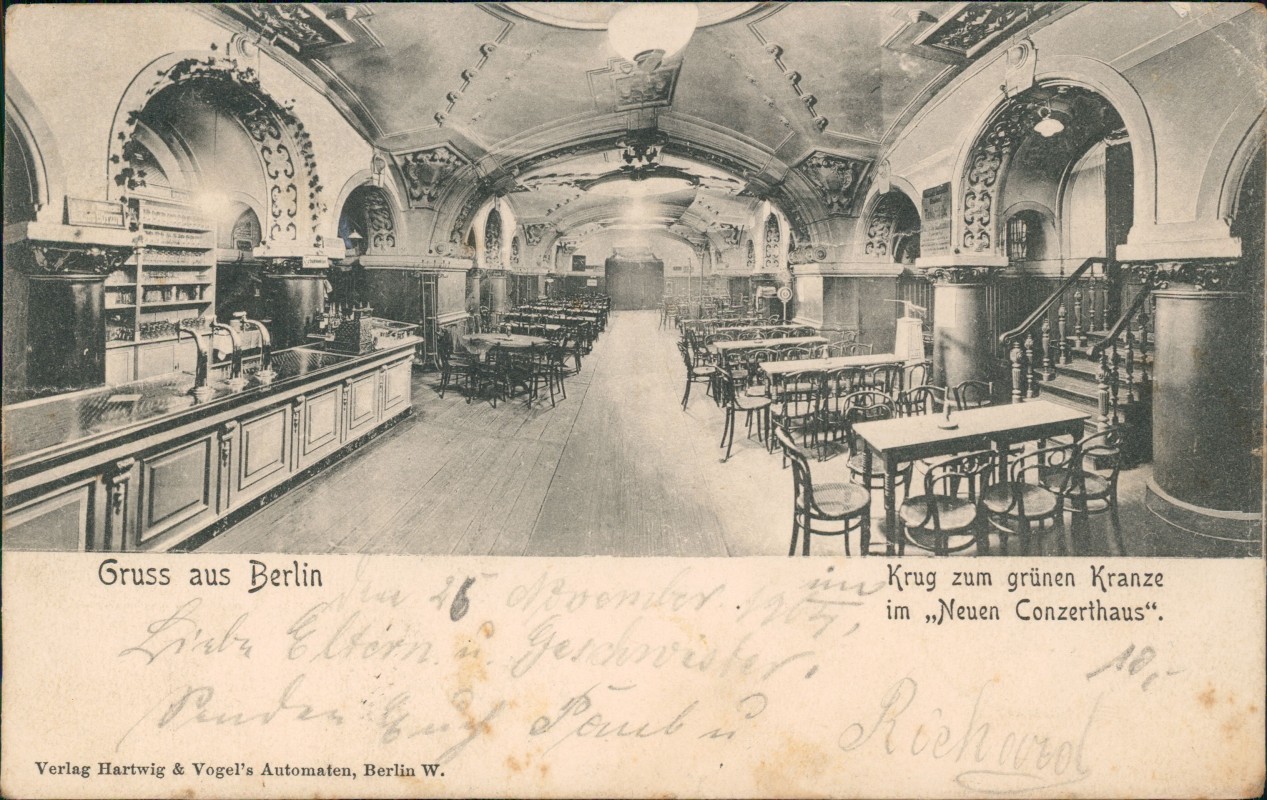 Gruss aus Berlin
Krug zum grünen Kranze
im „Neuen Conzerthaus“.
den 26 November
Liebe Eltern u. Geschwister.
Senden Euch u
Richard
Verlag Hartwig & Vogel's Automaten, Berlin W.